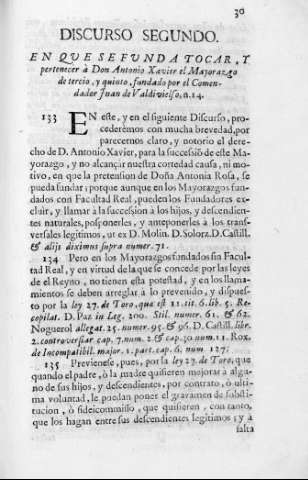 30
DISCURSO SEGUNDO.
EN QUE SE FUNDA TOCAR, Y
pertenecer à Don Antonio Xavier el Mayorazgo
de tercio, y quinto, fundado por el Comen-
dador Juan de Valdivielso, n.14.
133 EN este, y en el siguiente Discurso, pro-
cederèmos con mucha brevedad, por
parecernos claro, y notorio el dere-
cho de D. Antonio Xavier, para la successiõ de este Ma-
yorazgo, y no alcançar nuestra cortedad causa, ni mo-
tivo, en que la pretension de Doña Antonia Rosa, se
pueda fundar; porque aunque en los Mayorazgos fun-
dados con Facultad Real, pueden los Fundadores ex-
cluir, y llamar à la succession à los hijos, y descendien-
tes naturales, posponerles, y anteponerles à los trans-
versales legitimos, ut ex D. Molin. D. Solorz. D. Castill.
& alijs diximus supra numer. 71.
134 Pero en los Mayorazgos fundados sin Facul-
tad Real, y en virtud de la que se concede por las leyes
de el Reyno, no tienen esta potestad, y en los llama-
mientos se deben arreglar à lo prevenido, y dispues-
to por la ley 27. de Toro, que est 11. tit. 6. lib. 5. Re-
copilat. D. Paz in Leg. 200. Stil. numer. 61. & 62.
Noguerol allegat. 25. numer. 95. & 96. D. Castill. libr.
2. controversiar. cap. 7. num. 2. & cap. 20. num. 11. Rox.
de Incompatibil. major. 1. part. cap. 6. num. 127.
135 Previenese, pues, por la ley 27. de Toro, que
quando el padre, ò la madre quisieren mejorar à algu-
no de sus hijos, y descendientes, por contrato, ò ulti-
ma voluntad, le puedan poner el gravamen de substi-
tucion, ò fideicommisso, que quisieren, con tanto,
que los hagan entre sus descendientes legitimos; y a
falta